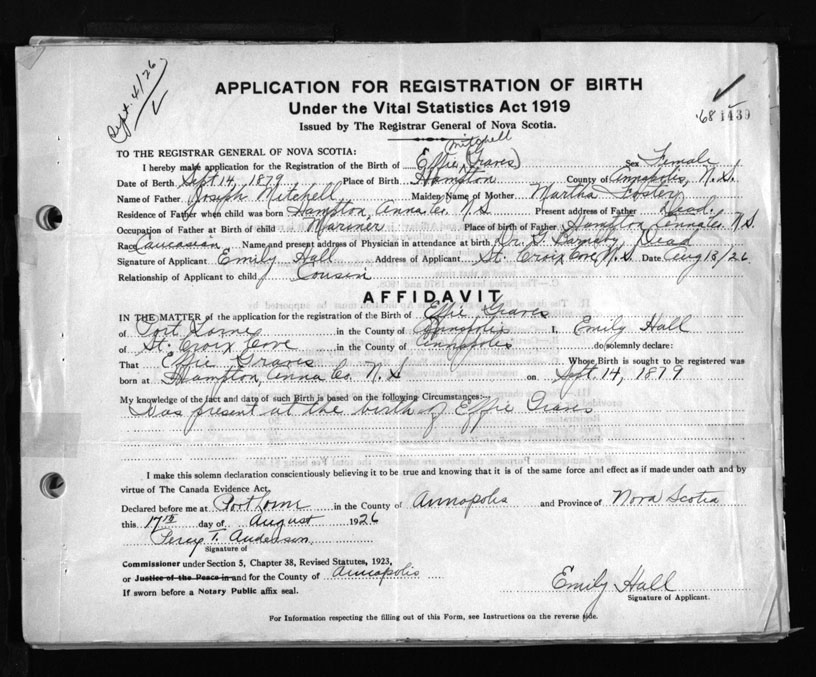 Sept. 4/26
APPLICATION FOR REGISTRATION OF BIRTH
Under the Vital Statistics Act 1919
Issued by The Registrar General of Nova Scotia.
'68 1439
TO THE REGISTRAR GENERAL OF NOVA SCOTIA:
Mitchell
I hereby make application for the Registration of the Birth of Effie (Graves) Sex Female
Date of Birth Sept 14, 1879 Place of Birth Hampton County of Annapolis, N.S.
Name of Father Joseph Mitchell Maiden Name of Mother Martha Foster
Residence of Father when child was born Hampton, Anna Co. N.S Present address of Father Dead.
Occupation of Father at Birth of child Mariner Place of birth of Father Hampton Anna Co. N.S.
Race Caucasian Name and present address of Physician in attendance at birth Dr. G. Barnaby Dead
Signature of Applicant Emily Hall Address of Applicant St. Croix Cove, N.S. Date Aug 18/26.
Relationship of Applicant to child Cousin
AFFIDAVIT
IN THE MATTER of the application for the registration of the Birth of Effie Graves
of Port Lorne in the County of Annapolis I, Emily Hall
of St. Croix Cove in the County of Annapolis do solemnly declare:
That Effie Graves Whose Birth is sought to be registered was
born at Hampton, Anna Co. N.S on Sept. 14, 1879
My knowledge of the fact and date of such Birth is based on the following Circumstances:—
Was present at the birth of Effie Graves
I make this solemn declaration conscientiously believing it to be true and knowing that it is of the same force and effect as if made under oath and by
virtue of The Canada Evidence Act.
Declared before me at Port Lorne in the County of Annapolis and Province of Nova Scotia
this 17th day of August 1926
Percy T. Anderson
Signature of
Commissioner under Section 5, Chapter 38, Revised Statutes, 1923,
or Justice of the Peace in and for the County of Annapolis
If sworn before a Notary Public affix seal.
Emily Hall
Signature of Applicant.
For Information respecting the filling out of this Form, see Instructions on the reverse side.